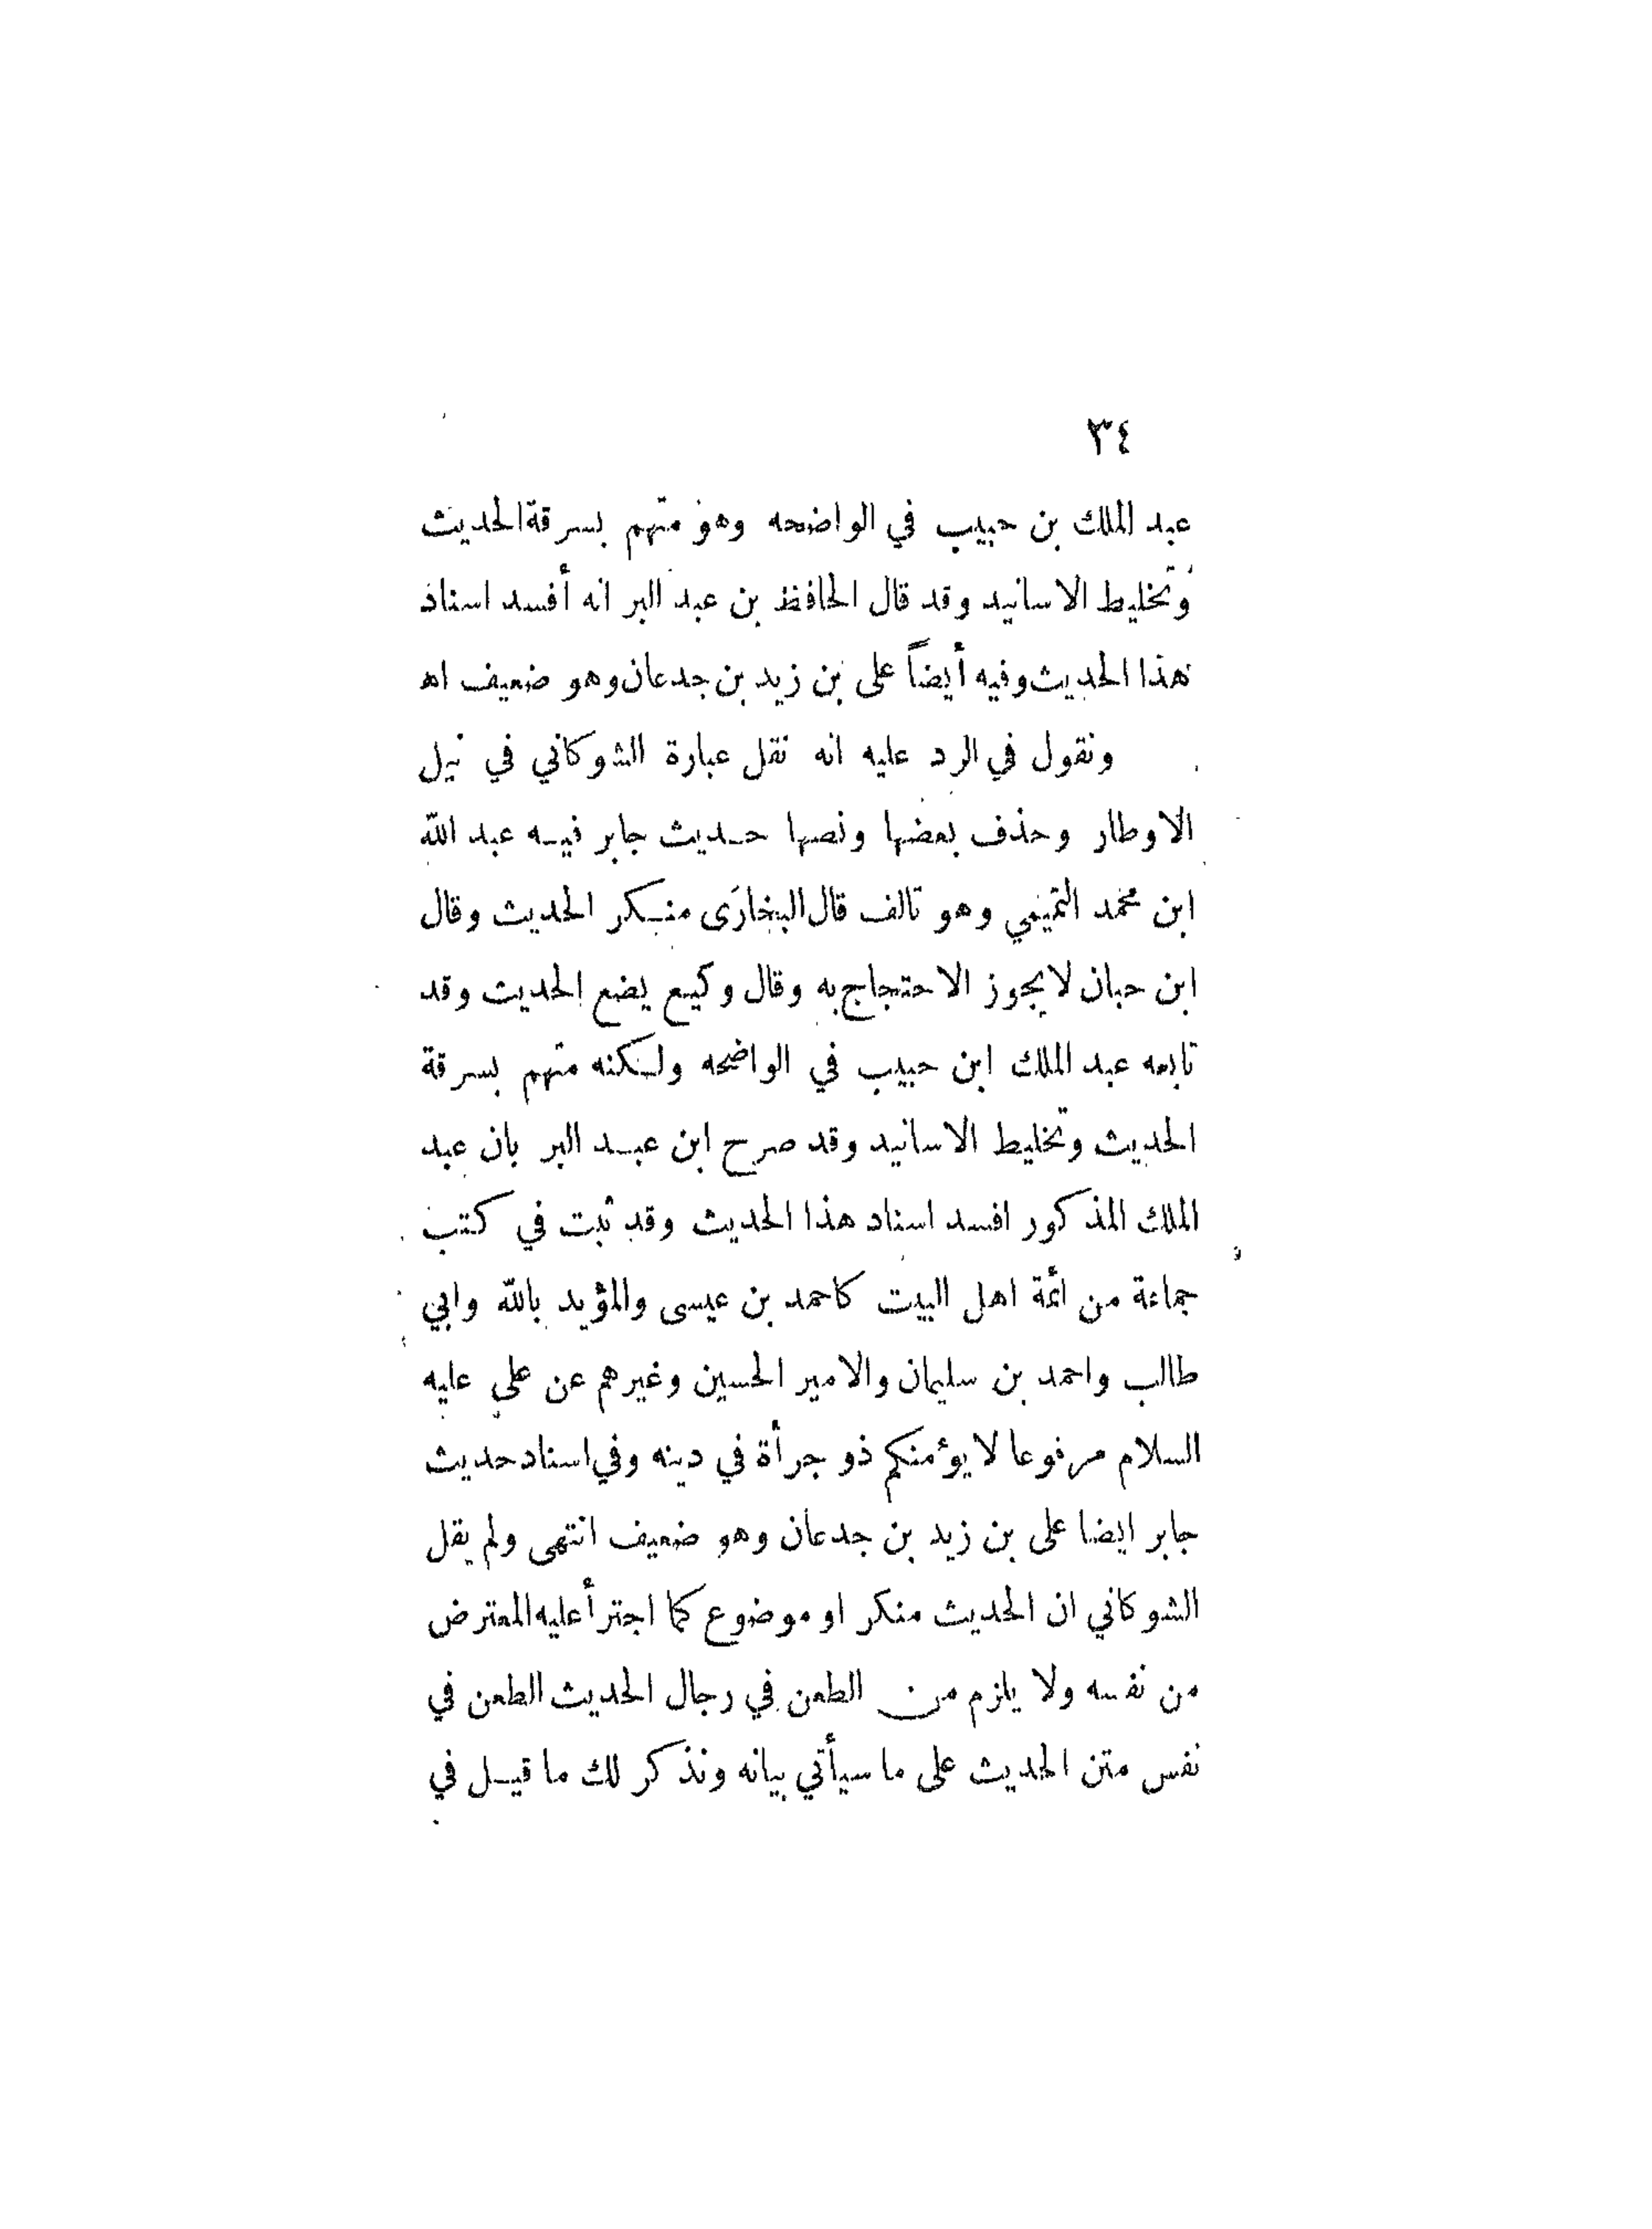 ٣٤
عبد الملك بن حبيب في الواضحه وهو متهم بسرقة الحديث
وتخليط الاسانيد وقد قال الحافظ بن عبد البر انه أفسد اسناد
هذا الحديث وفيه أيضاً على بن زيد بن جدعان وهو ضعيف اه
ونقول في الرد عليه انه نقل عبارة الشوكاني في نيل
الاوطار وحذف بعضها ونصها حديث جابر فيه عبد الله
ابن محمد التميمي وهو تالف قال البخارى منكر الحديث وقال
ابن حبان لا يجوز الاحتجاج به وقال وكيع يضع الحديث وقد
تابعه عبد الملك ابن حبيب في الواضحه ولكنه متهم بسرقة
الحديث وتخليط الاسانيد وقد صرح ابن عبد البر بان عبد
الملك المذكور افسد اسناد هذا الحديث وقد ثبت في كتب
جماعة من ائمة اهل البيت كاحمد بن عيسى والمؤيد بالله وابي
طالب واحمد بن سليمان والامير الحسين وغيرهم عن علي عليه
السلام مرفوعا لا يؤمنكم ذو جرأة في دينه وفي اسناد حديث
جابر ايضا على بن زيد بن جدعان وهو ضعيف انتهى ولم يقل
الشوكاني ان الحديث منكر او موضوع كما اجترأ عليه المعترض
من نفسه ولا يلزم من الطعن في رجال الحديث الطعن في
نفس متن الحديث على ما سيأتي بيانه ونذكر لك ما قيل في